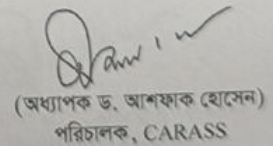 (অধ্যাপক ড. আশফাক হোসেন)
পরিচালক, CARASS